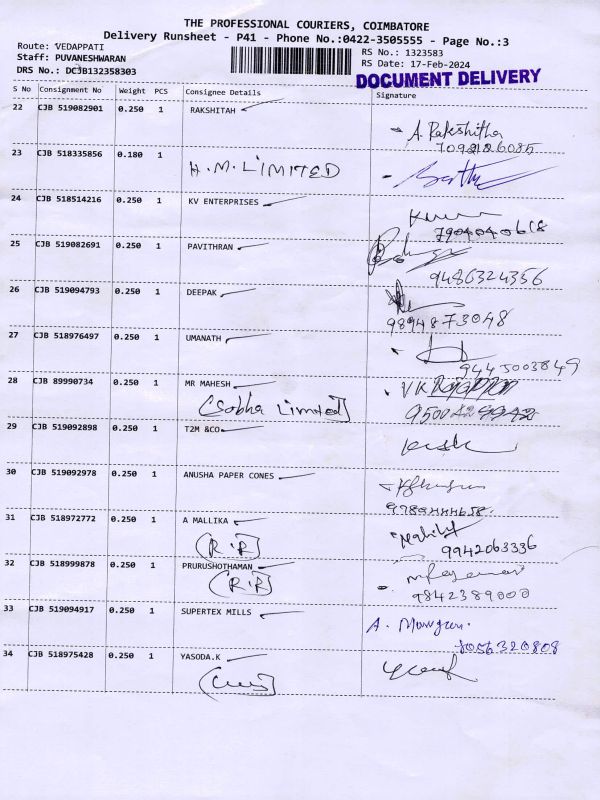 THE PROFESSIONAL COURIERS, COIMBATORE
Delivery Runsheet - P41 - Phone No.:0422-3505555 - Page No.:3
Route: VEDAPPATI
RS No.: 1323583
Staff: PUVANESHWARAN
RS Date: 17-Feb-2024
DRS No.: DCJB132358303
DOCUMENT DELIVERY
S No Consignment No Weight PCS Consignee Details Signature
22 CJB 519082901 0.250 1 RAKSHITAH
A. Rakshitha
23 CJB 518335856 0.180 1
H.M. LIMITED
24 CJB 518514216 0.250 1 KV ENTERPRISES
7904040618
25 CJB 519082691 0.250 1 PAVITHRAN
9486324356
26 CJB 519094793 0.250 1 DEEPAK
9894873048
27 CJB 518976497 0.250 1 UMANATH
9445003849
28 CJB 89990734 0.250 1 MR MAHESH
(Sobha Limited)
29 CJB 519092898 0.250 1 T2M &CO
30 CJB 519092978 0.250 1 ANUSHA PAPER CONES
31 CJB 518972772 0.250 1 A MALLIKA
(R.R)
9942063336
32 CJB 518999878 0.250 1 PRURUSHOTHAMAN
(R.R)
9842389000
33 CJB 519094917 0.250 1 SUPERTEX MILLS
A. Murugan.
8056320808
34 CJB 518975428 0.250 1 YASODA.K